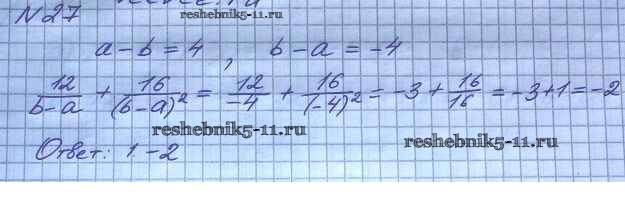 №27
reshebnik5-11.ru
a-b=4, b-a=-4
12/(b-a) + 16/(b-a)² = 12/-4 + 16/(-4)² = -3 + 16/16 = -3+1 = -2
reshebnik5-11.ru
reshebnik5-11.ru
Ответ: 1. -2